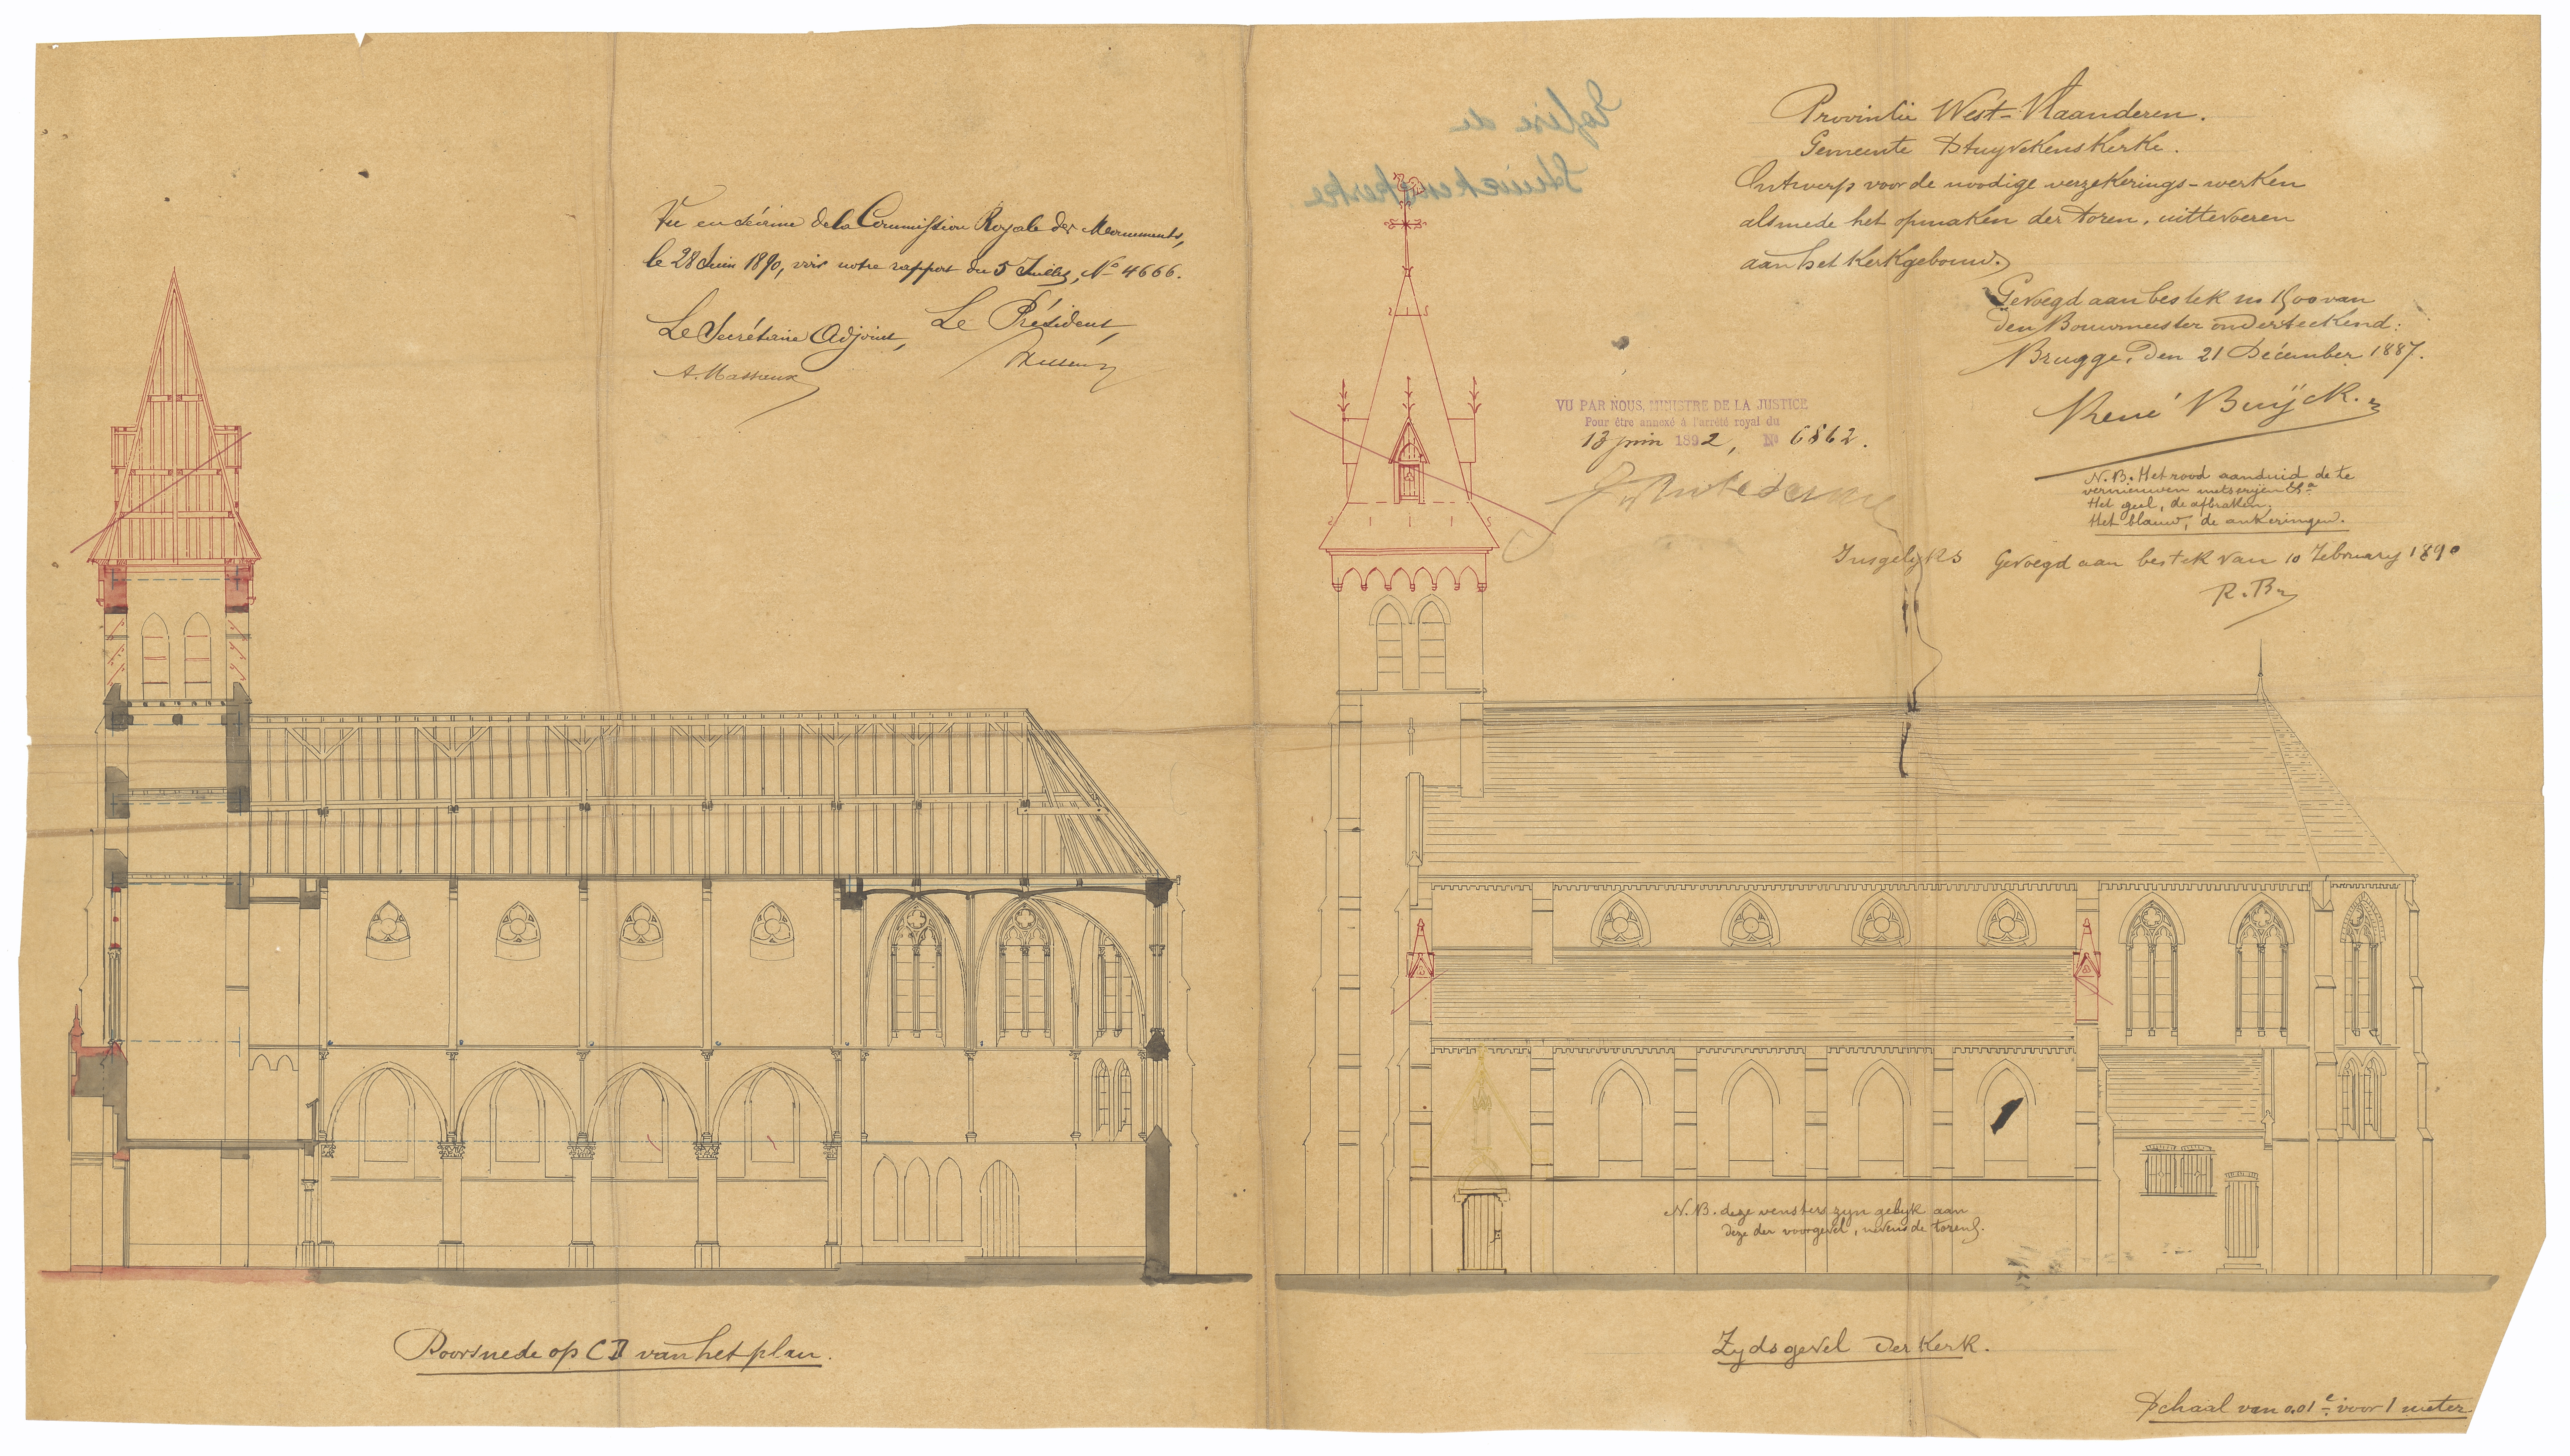 Vu en séance de la Commission Royale des Monuments,
le 28 Juin 1890, voir notre rapport du 5 Juillet, No 4666.
Le Secrétaire Adjoint, Le Président,
A. Massaux
Eglise de
Stuivekenskerke
Provintie West-Vlaanderen.
Gemeente Stuyvekenskerke.
Ontwerp voor de noodige verzekerings-werken
alsmede het opmaken der toren, uittevoeren
aan het kerkgebouw.
Gevoegd aan bestek no 1500 van
den Bouwmeester onderteekend:
Brugge, den 21 Décember 1887.
René Buÿck.
VU PAR NOUS, MINISTRE DE LA JUSTICE
Pour être annexé à l'arrêté royal du
13 juin 1892, No 6862.
N.B. Het rood aanduid de te
vernieuwen metserijen &a
Het geel, de afbraken.
Het blauw, de ankeringen.
Insgelyks Gevoegd aan bestek van 10 February 1890
R. B.
N.B. deze vensters zyn gelyk aan
deze der voorgevel, nevens de toren.
Doorsnede op CD van het plan.
Zydsgevel der Kerk.
Schaal van 0.01c voor 1 meter